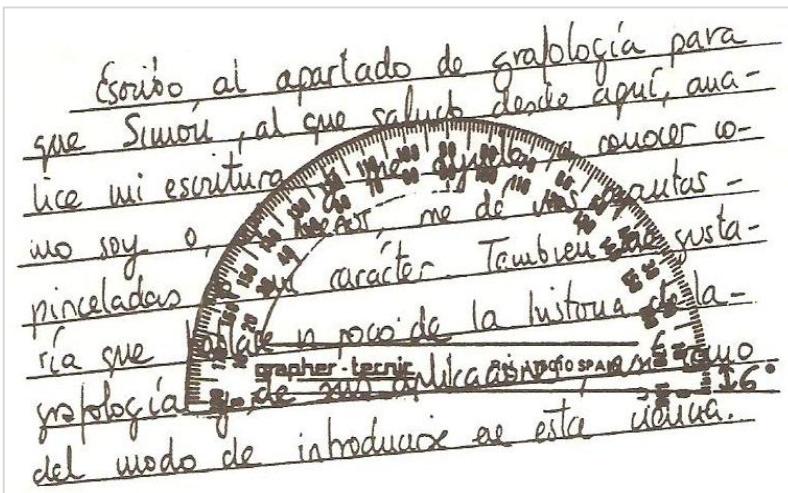 Escribo al apartado de grafología para
que Simón, al que saludo desde aquí, ana-
lice mi escritura y me ayude a conocer co-
mo soy o, mejor, me dé unas cuantas
pinceladas mi carácter. Tambien me gusta-
ría que hablase un poco de la historia de la
grafología y de sus aplicaciones, así como
del modo de introducirse en esta
grapher-tecnic
SPAIN
6°